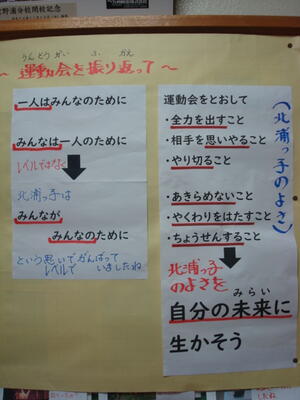 りんどうかい ふ かえ
～運動会を振り返って～
一人はみんなのために
みんなは一人のために
レベルではなく
北浦っ子は
みんなが
みんなのために
という思いでがんばって
レベルで いましたね
運動会をとおして
・全力を出すこと
・相手を思いやること
・やり切ること
・あきらめないこと
・やくわりをはたすこと
・ちょうせんすること
（北浦っ子のよさ）
北浦っ子
のよさを
みらい
自分の未来に
生かそう